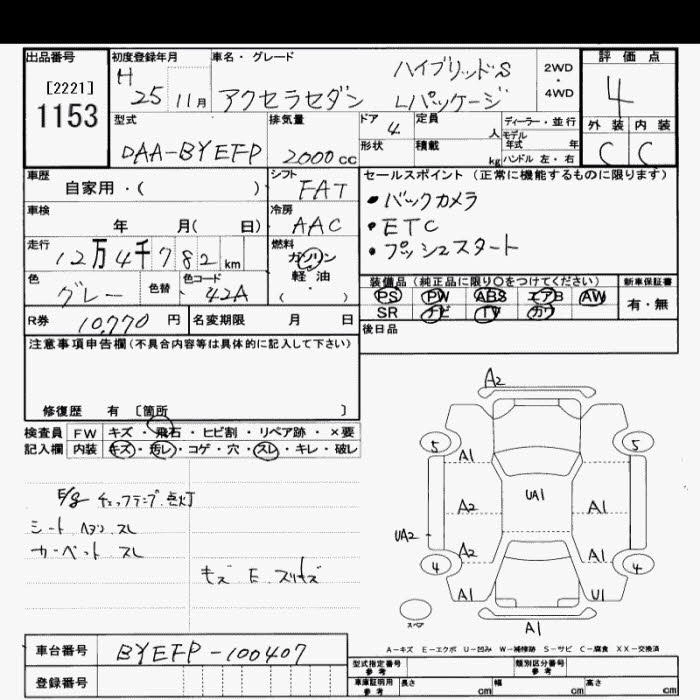 出品番号 初度登録年月 車名・グレード 評価点
[2221] 1153
H 25年 11月
アクセラセダン ハイブリッドS Lパッケージ
2WD ・ 4WD
4
外装 内装
C C
型式 DAA-BYEFP
排気量 2000cc
ドア 4 定員 人
形状 積載 kg
ディーラー・並行
モデル年式 年
ハンドル 左・右
車歴 自家用・( )
シフト FAT
車検 年 月( 日)
冷房 AAC
走行 12万4千782km
燃料 ガソリン 軽油 ( ・ )
色 グレー 色替 色コード 42A
R券 10,770円 名変期限 月 日
セールスポイント(正常に機能するものに限ります)
・バックカメラ
・ETC
・プッシュスタート
装備品(純正品に限り〇をつけてください) 新車保証書
PS PW ABS エアB AW
SR ナビ TV カワ
有・無
後日品
注意事項申告欄(不具合内容等は具体的に記入して下さい)
修復歴 有 〔箇所 〕
検査員 FW キズ・飛石・ヒビ割・リペア跡・×要
記入欄 内装 キズ・汚レ・コゲ・穴・スレ・キレ・破レ
E/g チェックランプ点灯
シート ハンドル スレ
カーペット スレ
キズ E
A2
5 5
A1
UA1
A2 A1
UA2
A2 A1
4 4
A1 U1
スペア
A1
A-キズ E-エクボ U-凹み W-補修跡 S-サビ C-腐食 XX-交換済
車台番号 BYEFP-100407
登録番号
型式指定番号 参考 類別区分番号 参考
車庫証明用 参考 長さ cm 幅 cm 高さ cm